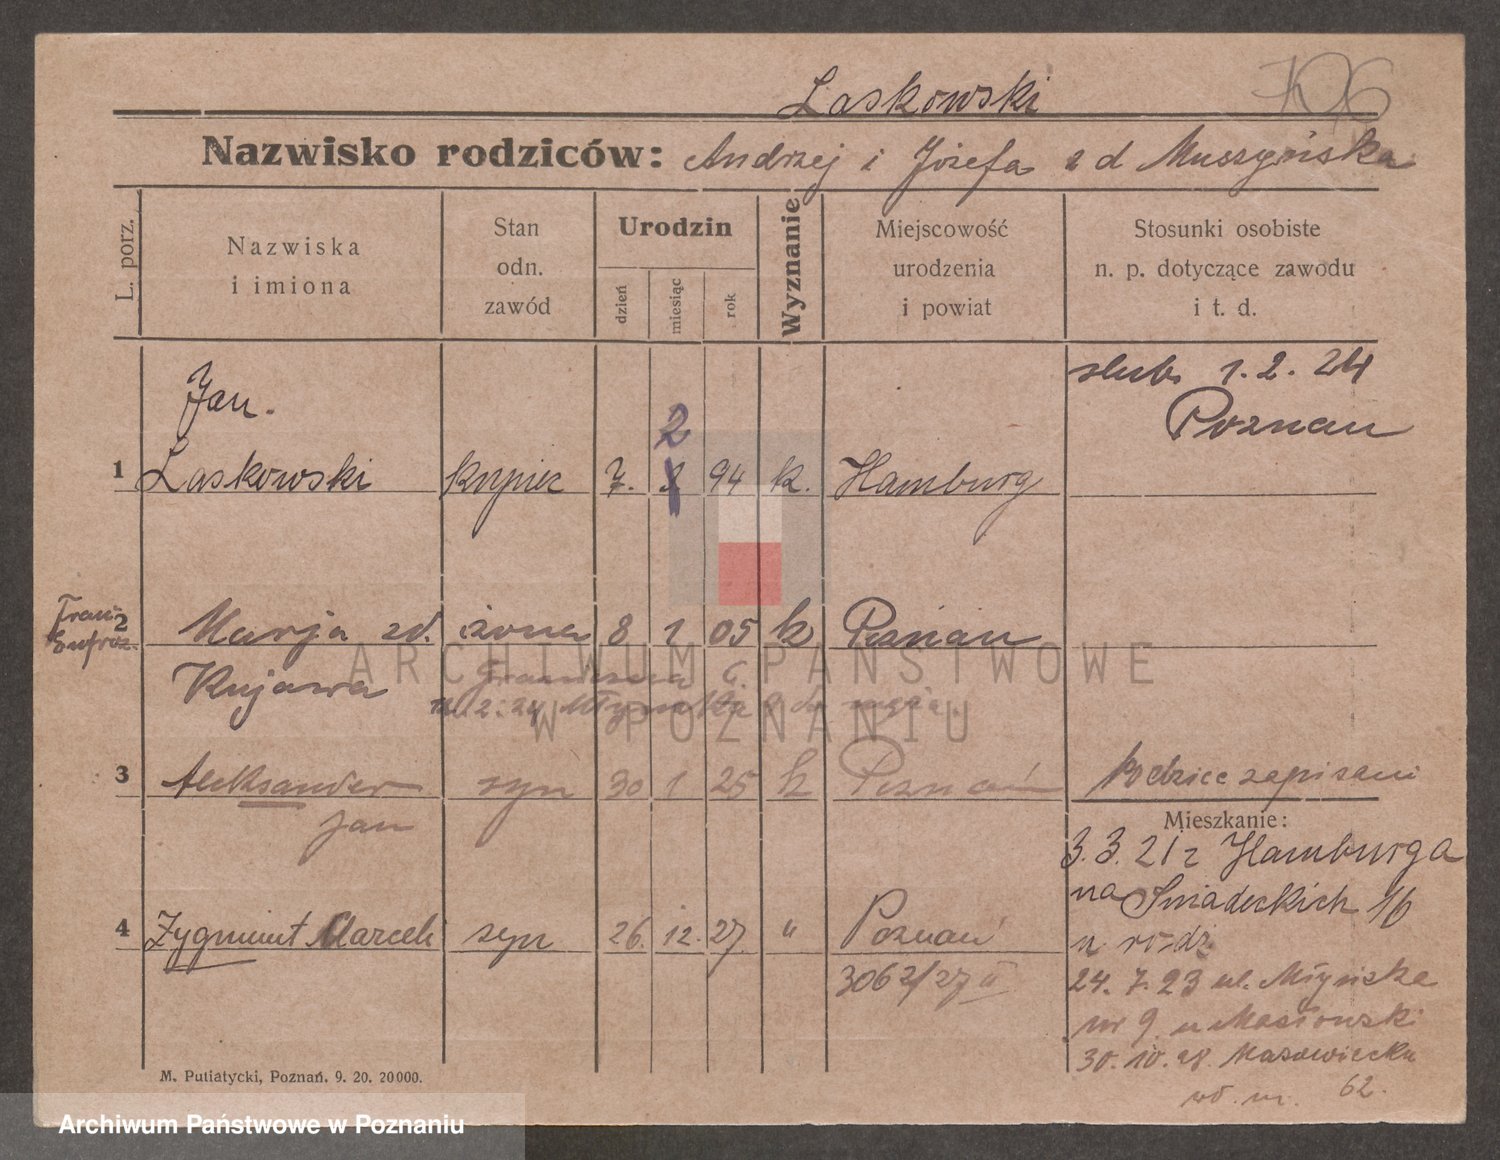 Laskowski
Nazwisko rodziców: Andrzej i Józefa z d Muszyńska
L. porz.
Nazwiska
i imiona
Stan
odn.
zawód
Urodzin
dzień
miesiąc
rok
Wyznanie
Miejscowość
urodzenia
i powiat
Stosunki osobiste
n. p. dotyczące zawodu
i t. d.
ślub 1.2.24
Poznań
Jan.
2
1 Laskowski kupiec 7. 94 k. Hamburg
2 Marja zd. żona 8 1 05 k Poznań
Kujawa
12.2.24 Młyńska 9 do męża.
3 Aleksander syn 30 1 25 k Poznań
Jan
Rodzice zapisani
Mieszkanie:
3.3.21 z Hamburga
na Śniadeckich 16
u rodz.
4 Zygmunt Marceli syn 26. 12. 27 " Poznań
3062/27 II
24.7.23 ul. Młyńska
nr 9 u Masłowski
30.10.28 Mazowiecka
62.
M. Putiatycki, Poznań. 9. 20. 20000.
ARCHIWUM PAŃSTWOWE
W POZNANIU
Archiwum Państwowe w Poznaniu